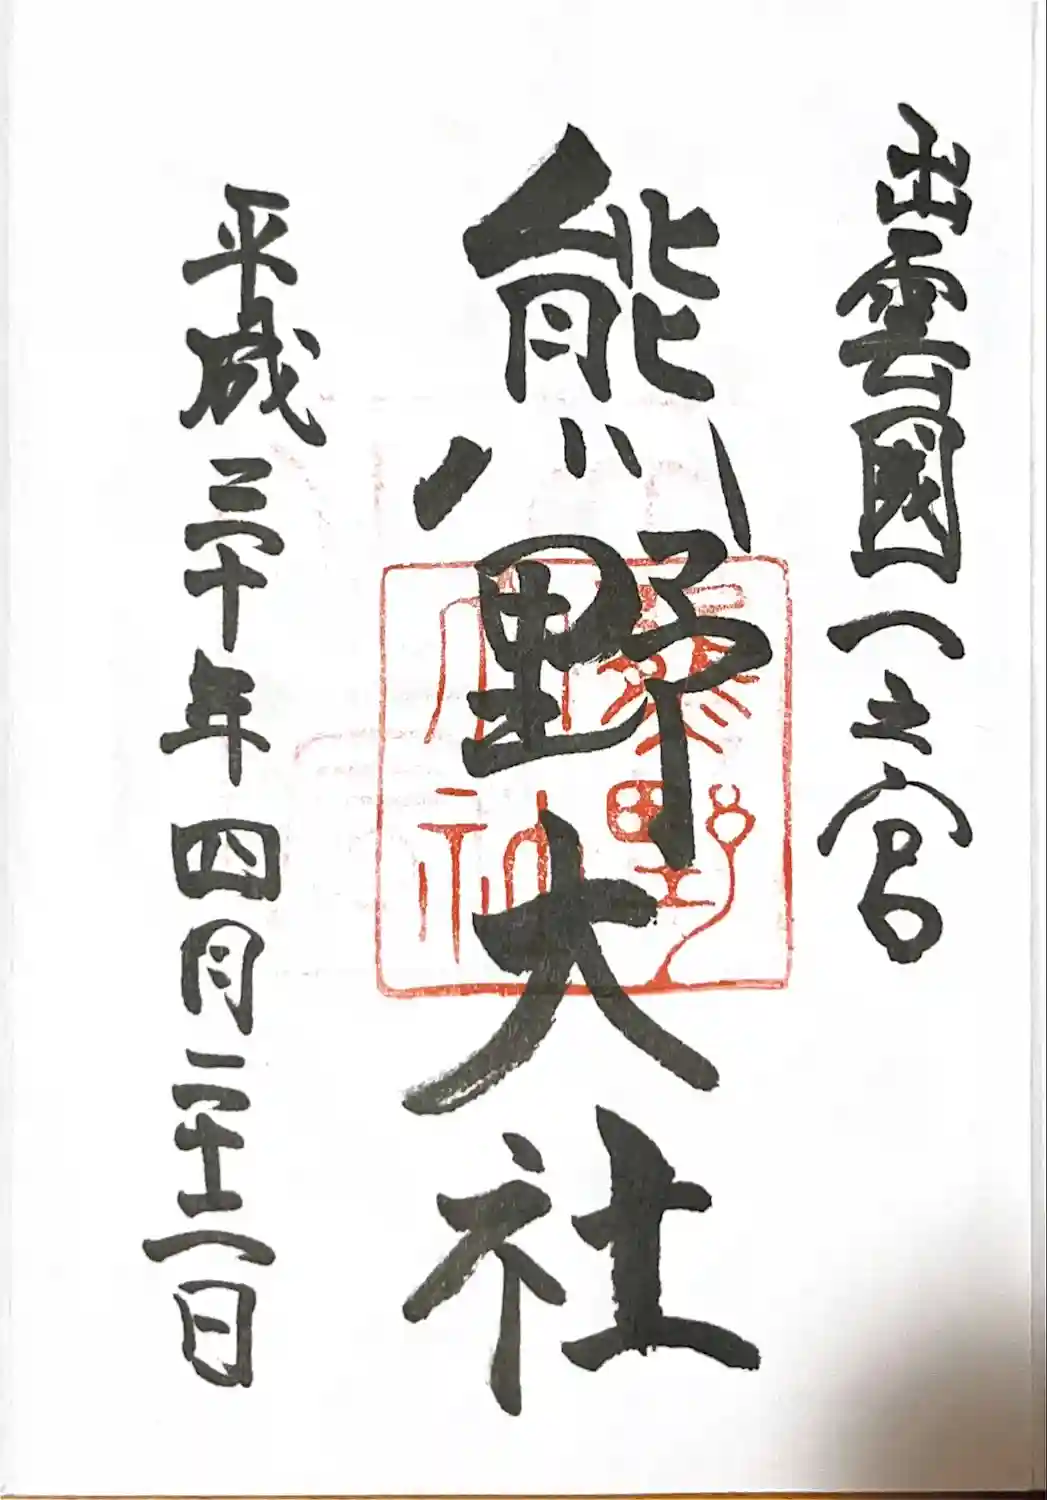 出雲國一之宮
熊野大社
熊野
大神
平成三十年四月二十二日